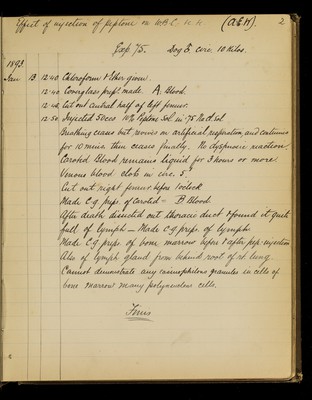 Effect of injection of peptone on W.B.C. (A.E.W.) 2
Exp. 75. Dog E. circ. 10 kilos.
1893
Jan 13 12.40 Chloroform & Ether given.
12.40 Coverglass prepns made. A. Blood.
12.40 Cut out central half of left femur.
12.50 Injected 50cco 10% Peptone Sol. in .75 NaCl. Sol.
Breathing ceases but revives on artificial respiration and continues
for 10 mins then ceases finally. No dyspnoeic reaction.
Carotid Blood remains liquid for 3 hours or more.
Venous blood clots in circ. 5".
Cut out right femur before 1 o'clock
Made C.g. preps. of Carotid - B Blood
After death dissected out thoracic duct & found it quite
full of lymph - Made C.g. preps. of lymph
Made C.g. preps of bone marrow before & after pep. injection
Also of lymph gland from behind root of rt. lung.
Cannot demonstrate any eosinophilous granules in cells of
bone marrow many polynuclear cells.
Finis